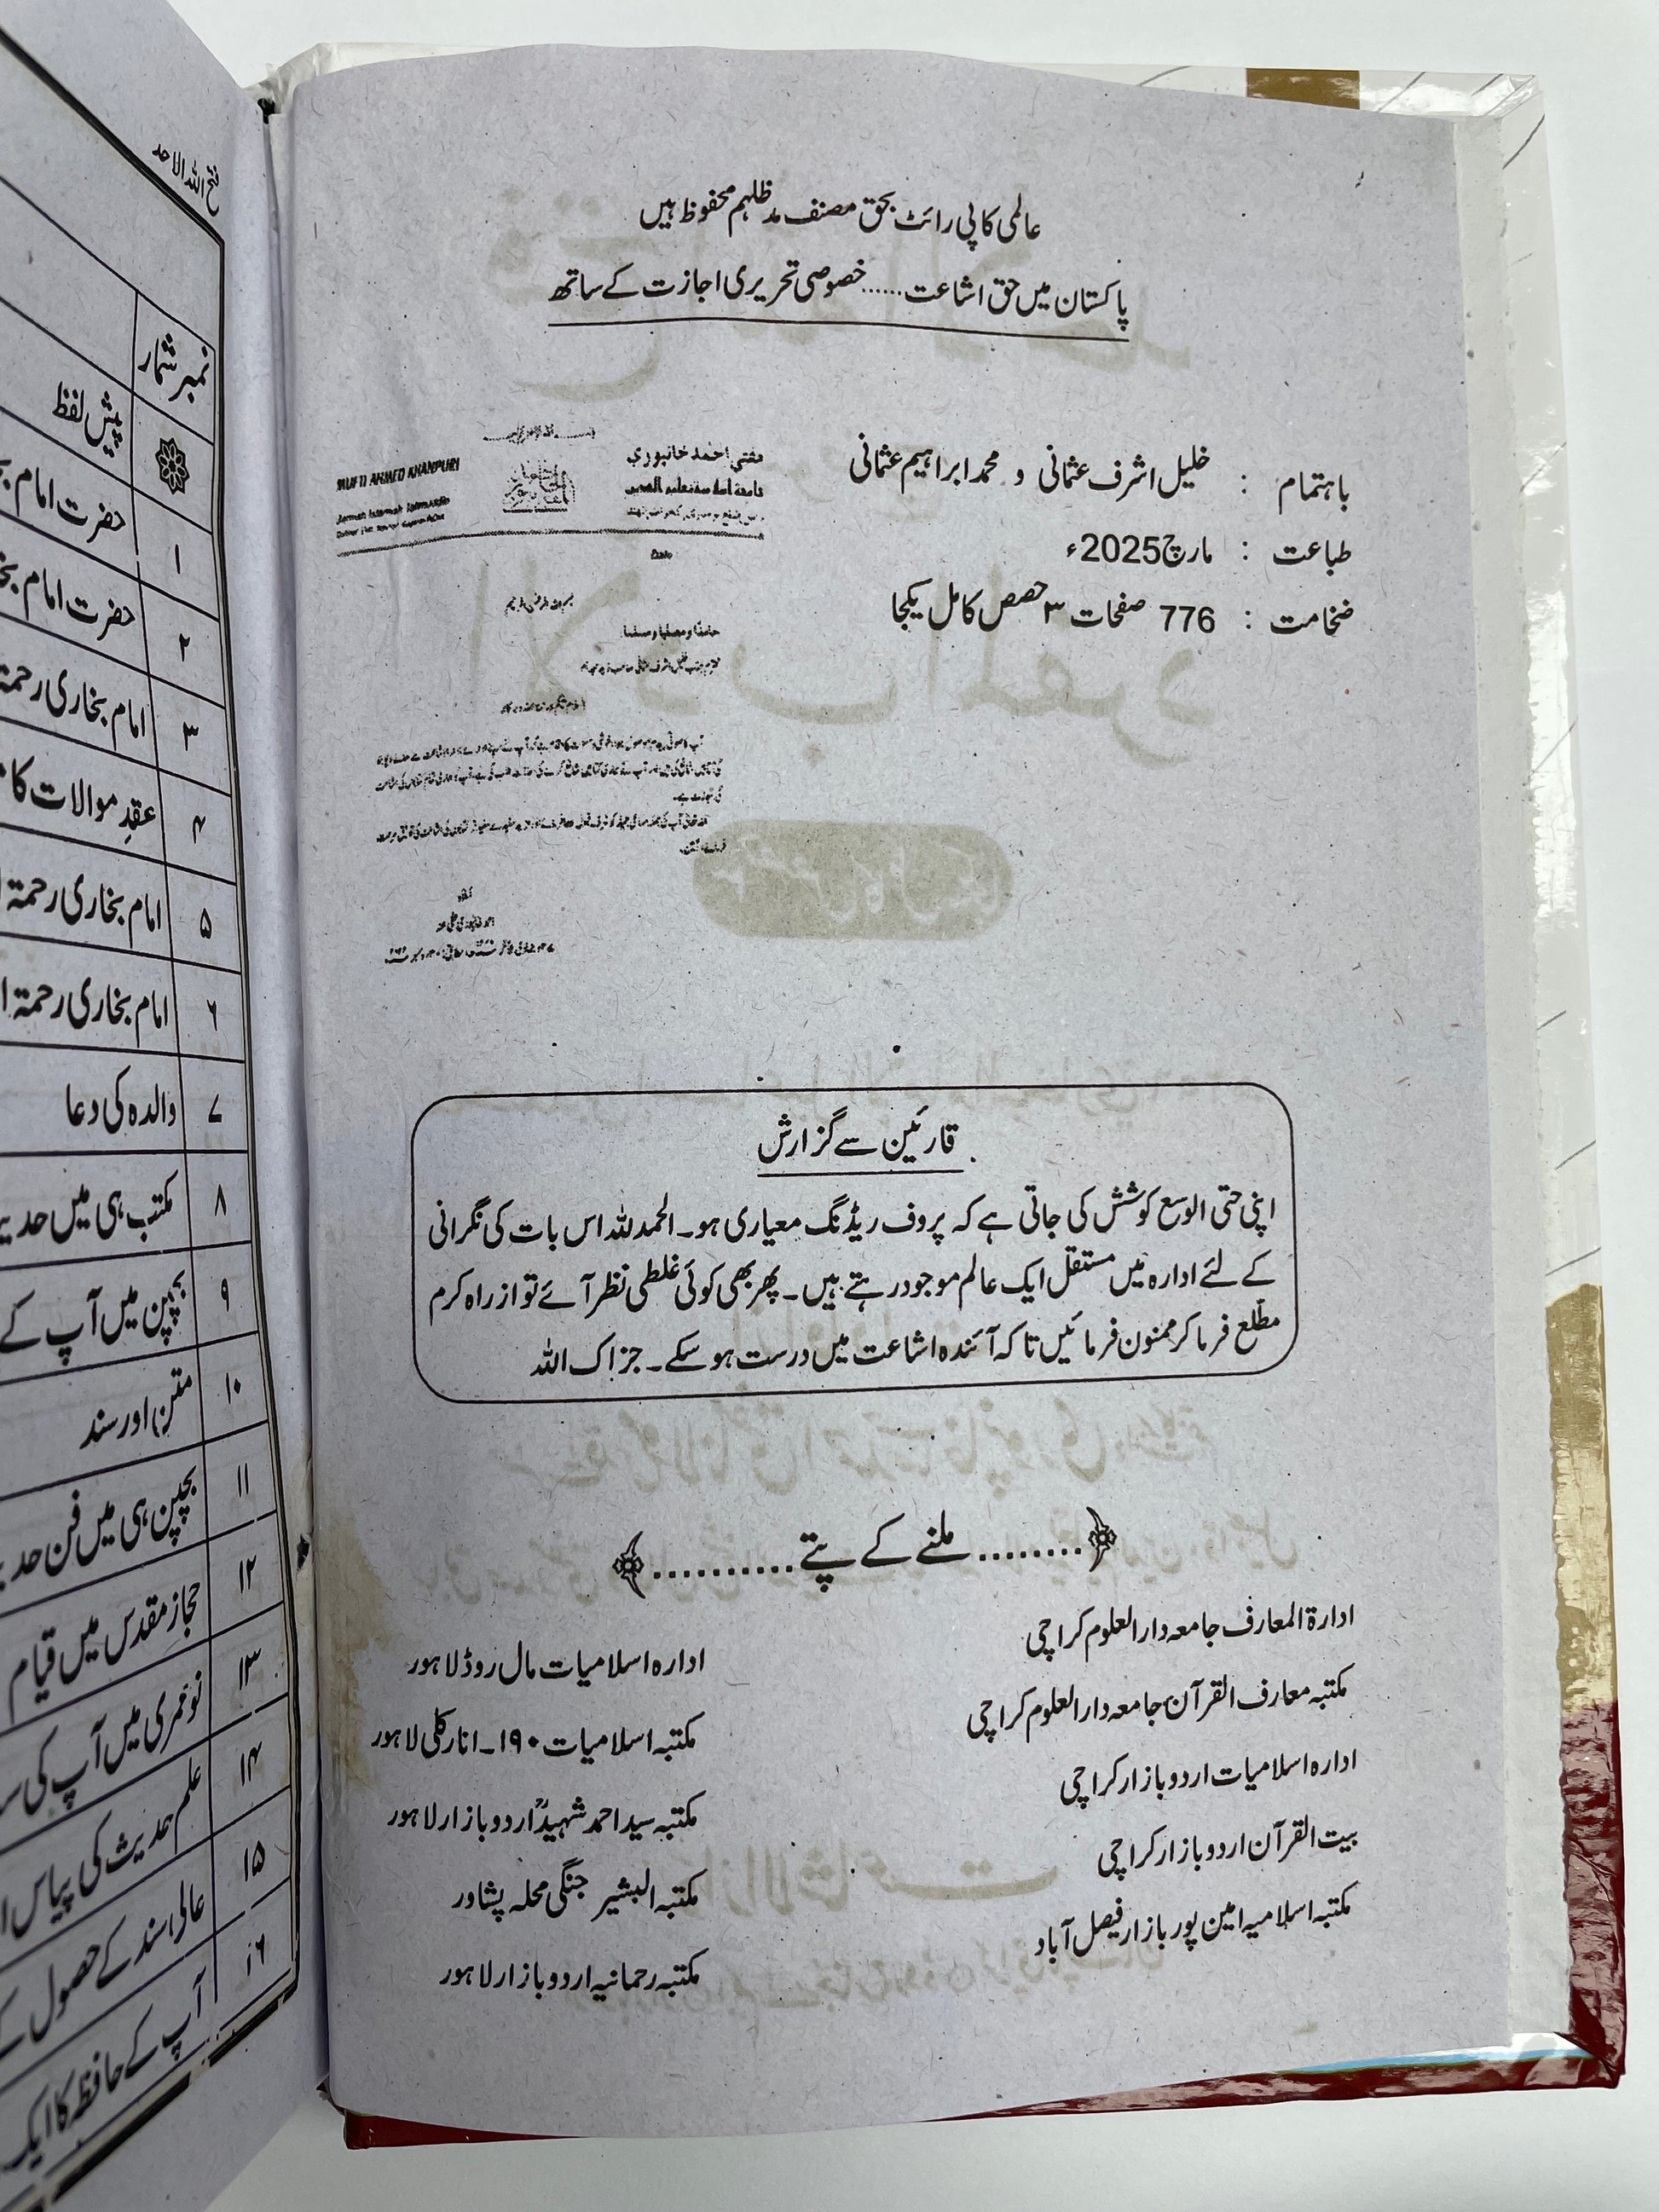 عالمی کاپی رائٹ بحق مصنف مدظلہم محفوظ ہیں
پاکستان میں حق اشاعت......خصوصی تحریری اجازت کے ساتھ
باہتمام : خلیل اشرف عثمانی و محمد ابراہیم عثمانی
طباعت : مارچ 2025ء
ضخامت : 776 صفحات ۳ حصص کامل یکجا
مفتي احمد خانبوري
MUFTI AHMED KHANPURI
Date
حامدًا ومصلیا ومسلما
قارئین سے گزارش
اپنی حتی الوسع کوشش کی جاتی ہے کہ پروف ریڈنگ معیاری ہو۔ الحمد للہ اس بات کی نگرانی
کے لئے ادارہ میں مستقل ایک عالم موجود رہتے ہیں۔ پھر بھی کوئی غلطی نظر آئے تو از راہ کرم
مطلع فرما کر ممنون فرمائیں تاکہ آئندہ اشاعت میں درست ہو سکے۔ جزاک اللہ
........ملنے کے پتے..........
ادارۃ المعارف جامعہ دارالعلوم کراچی
مکتبہ معارف القرآن جامعہ دارالعلوم کراچی
ادارہ اسلامیات اردو بازار کراچی
بیت القرآن اردو بازار کراچی
مکتبہ اسلامیہ امین پور بازار فیصل آباد
ادارہ اسلامیات مال روڈ لاہور
مکتبہ اسلامیات ۱۹۰۔ انارکلی لاہور
مکتبہ سید احمد شہیدؒ اردو بازار لاہور
مکتبہ البشیر جنگی محلہ پشاور
مکتبہ رحمانیہ اردو بازار لاہور
فتح اللہ الاحد
نمبر شمار
پیش لفظ
۱ حضرت امام
۲ حضرت امام
۳ امام بخاری رحمۃ
۴ عقدِ موالات کا
۵ امام بخاری رحمۃ
۶ امام بخاری رحمۃ
۷ والدہ کی دعا
۸ مکتب ہی میں
۹ بچپن میں آپ کے
۱۰ متن اور سند
۱۱ بچپن ہی میں فن
۱۲ حجاز مقدس میں قیام
۱۳ نو عمری میں آپ کی
۱۴ علم حدیث کی پیاس
۱۵ عالی سند کے حصول کے
۱۶ آپ کے حافظہ کا ایک